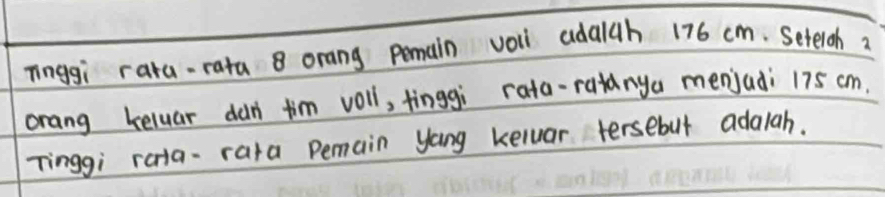 Tinggi rata-rata 8 orang Pemain voli adalah 176 cm. Setelah 2
orang keluar dari tim voli, tinggi rata-ratanya menjadi 175 cm.
Tinggi rata-rata Pemain yang keluar tersebut adalah.